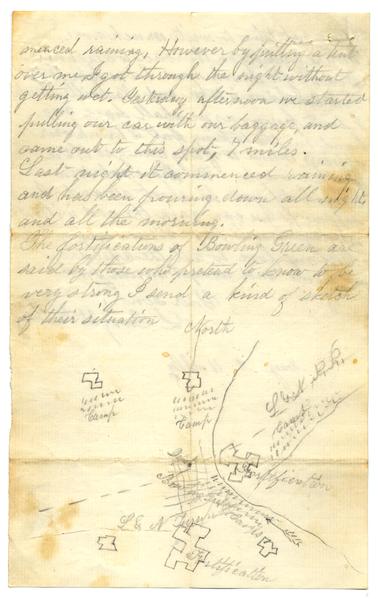 menced raining, However by putting a tent
over me I got through the night without
getting wet. Yesterday afternoon we started
pulling our car with our baggage, and
came out to this spot, 7 miles.
Last night it commenced raining
and has been pouring down all night
and all the morning.
The fortifications of Bowling Green are
said by those who pretend to know to be
very strong I send a kind of sketch
of their situation
North
L & N R. R.
Camp
Camp
Camp
Fortification
L & N
Fortification